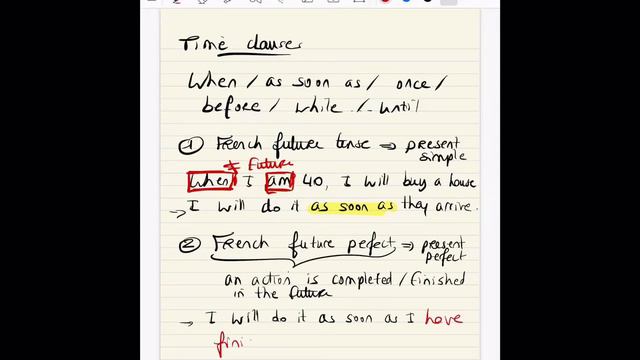 Time clauses
When / as soon as / once /
before / while / until
① French future tense ⇒ present simple
≠ Future
When I am 40, I will buy a house
→ I will do it as soon as they arrive.
② French future perfect ⇒ present perfect
an action is completed / finished
in the future
→ I will do it as soon as I have
fini